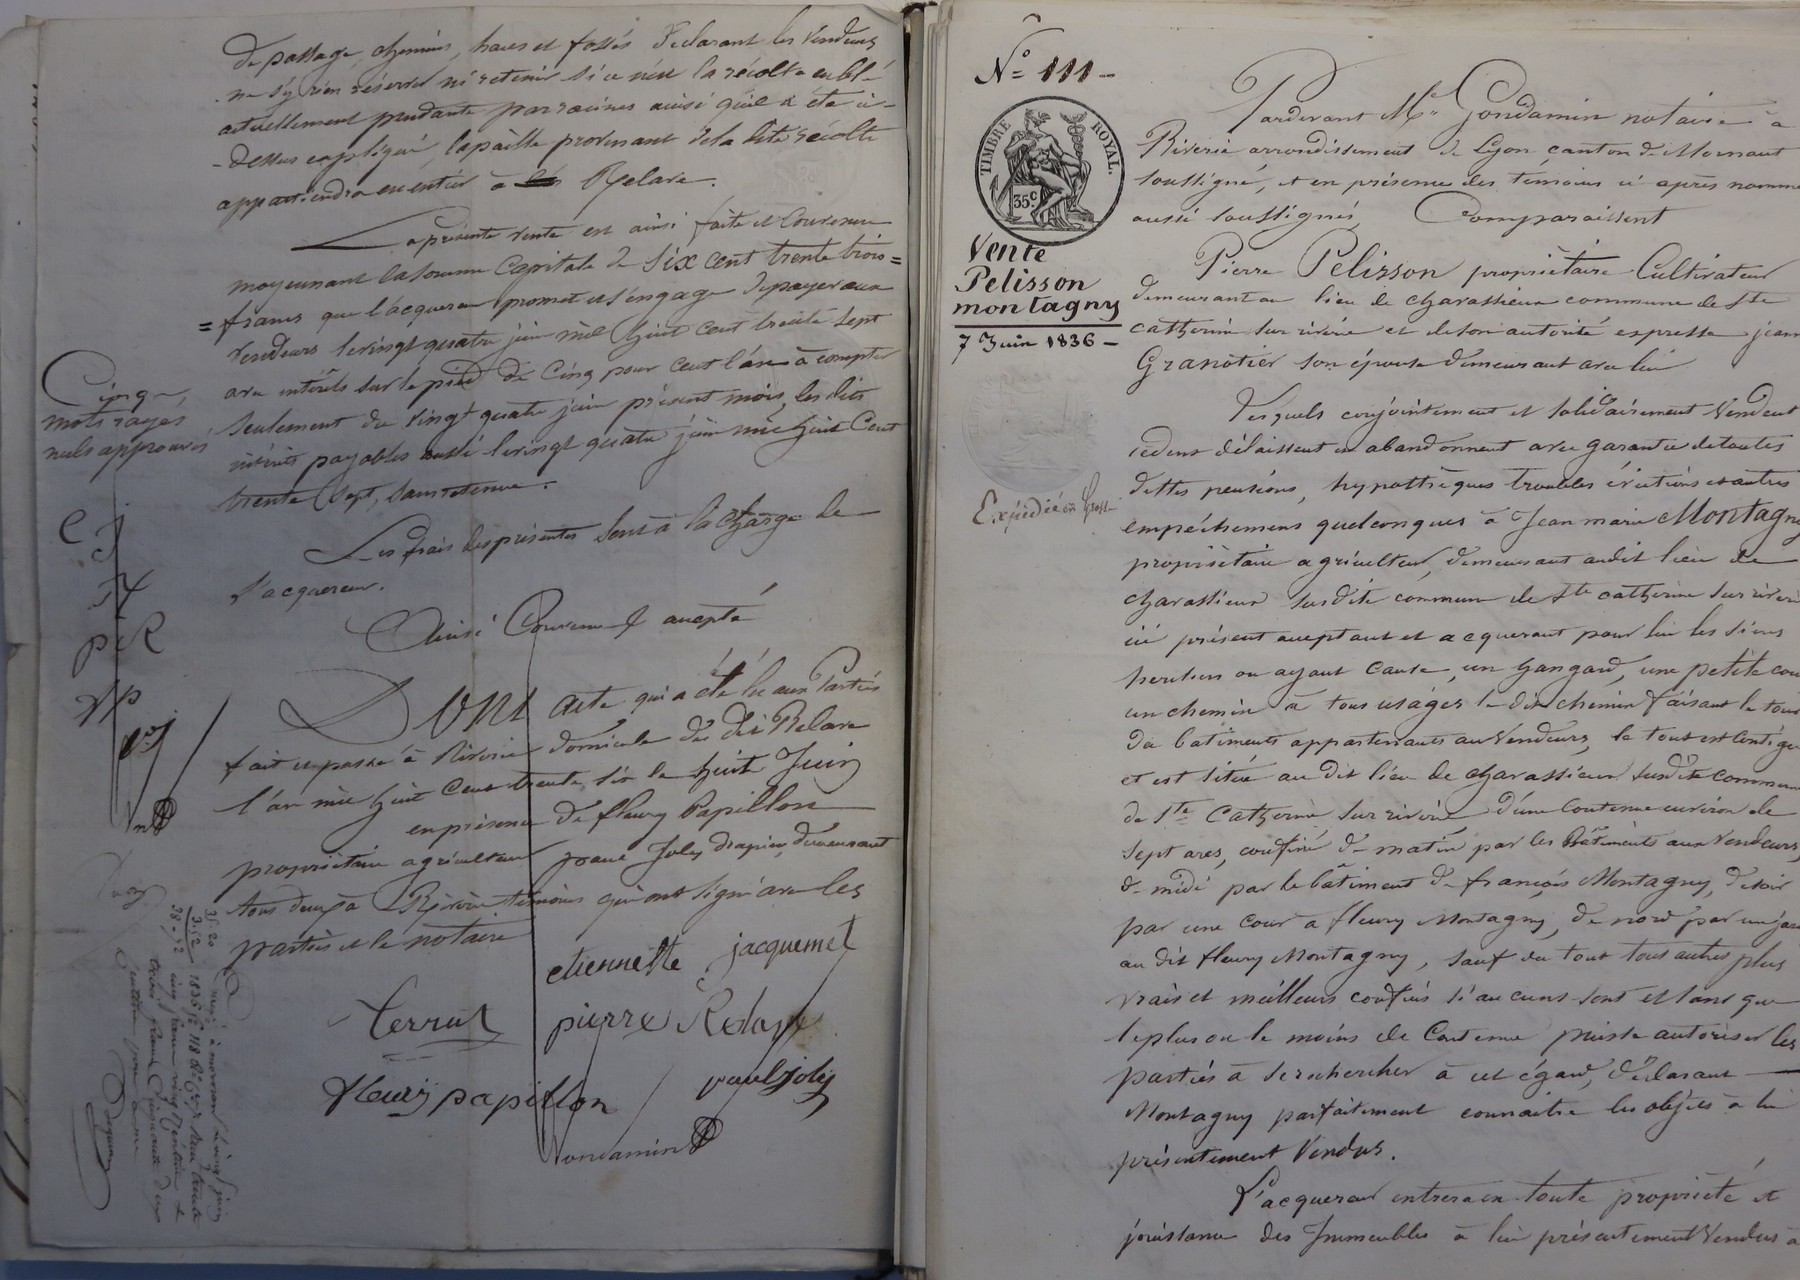 de passage, chemins, haies et fossés Déclarant les Vendeurs
ne s'y rien réserver ni retenir si ce n'est la récolte en blé
actuellement pendante par racines ainsi qu'il a été ci-
-dessus expliqué, la paille provenant de la dite récolte
appartiendra en entier à Relave.
La présente vente est ainsi faite et Convenue
moyennant la somme Capitale de Six cent trente trois =
= francs que l'acquereur promet et s'engage de payer aux
Vendeurs le vingt quatre juin mil huit cent trente sept
avec intérêts sur le pied de Cinq pour Cent l'an à compter
seulement du vingt quatre juin présent mois, les dits
intérêts payables aussi le vingt quatre juin mil huit Cent
trente Sept, sans retenue.
Les frais des présentes Sont à la charge de
l'acquereur.
Ainsi Convenu & accepté
Dont acte qui a été lu aux Parties
fait et passé à Riverie domicile du dit Relave
l'an mil huit Cent trente six le huit Juin
en présence de fleury Papillon
propriétaire agriculteur Joly drapier, demeurant
tous deux à Riverie témoins qui ont signé avec les
parties et le notaire
etiennette jacquemet
Terrat pierre Relave
fleury papillon paul joly
Gondamin
Cinq
mots rayés
nuls approuvés
E J
P R
f p
N° 111 -
TIMBRE ROYAL.
35 c
Vente
Pelisson
montagny
7 Juin 1836 -
Expédié en Grosse
Pardevant Me Gondamin notaire à
Riverie arrondissement de Lyon canton de Mornant
soussigné, et en présence des témoins ci après nommés
aussi soussignés, Comparaissent
Pierre Pelisson propriètaire Cultivateur
demeurant au lieu de charassieux commune de Ste
catherine sur riverie et de son autorité expresse jeanne
Granotier son épouse demeurant avec lui
Lesquels conjointement et solidairement Vendent
cèdent délaissent et abandonnent avec garantie de toutes
dettes pensions, hypothèques troubles évictions et autres
empéchemens quelconques à Jean marie Montagny
propriètaire agriculteur, demeurant audit lieu de
charassieux susdite commune de Ste catherine sur riverie
ici présent acceptant et acquerant pour lui les siens
heritiers ou ayant Cause, un hangard, une petite cour
un chemin à tous usages le dit chemin faisant le tour
de batiments appartenants au Vendeurs, le tout est Contigu
et est situé au dit lieu de charassieux susdite commune
de Ste Catherine sur riverie d'une Contenue environ de
sept ares, confiné de matin par les Bâtiments aux Vendeurs,
de midi par le bâtiment de françois Montagny, de soir
par une cour a fleury Montagny, de nord par un
au dit fleury Montagny, sauf du tout tous autres plus
vrais et meilleurs confins si aucuns sont et sans que
le plus ou le moins de Contenue puisse autoriser les
parties à se rechercher à cet égard, déclarant
Montagny parfaitement connaitre les objets à lui
présentement Vendus.
L'acquereur entrera en toute propriété et
jouissance des Immeubles à lui présentement Vendus à